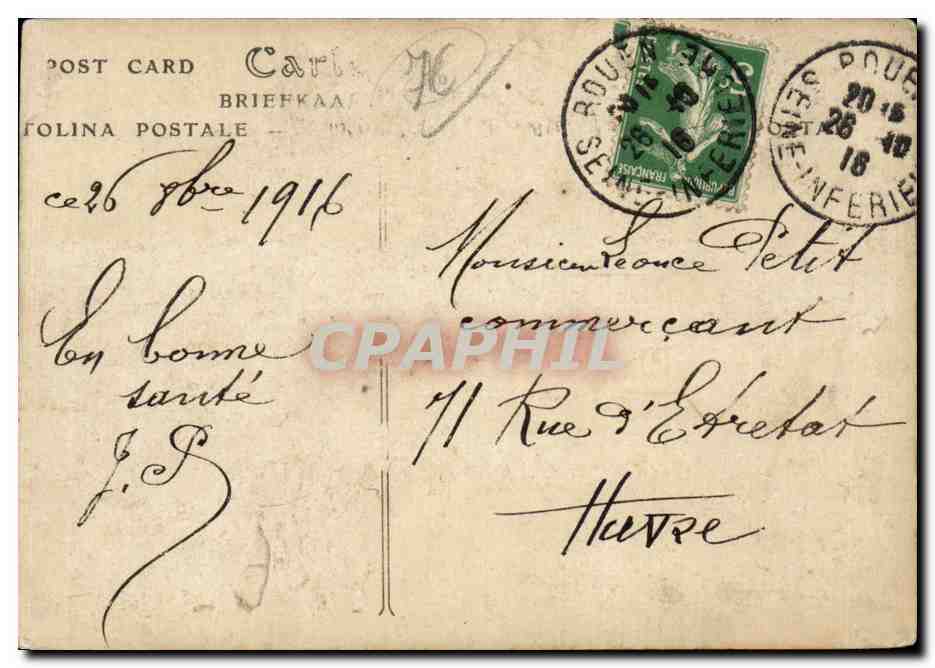 POST CARD
Carte
76
BRIEFKAA
TOLINA POSTALE —
ROUEN
20 15
26 10
16
SEINE-INFERIEURE
REPUBLIQUE FRANÇAISE
ROUEN
20 15
26 10
16
SEINE-INFERIEURE
ce 26 8bre 1916
En bonne
santé
J. P
Monsieur Léonce Petit
commerçant
71 Rue d'Etretat
Havre
CPAPHIL